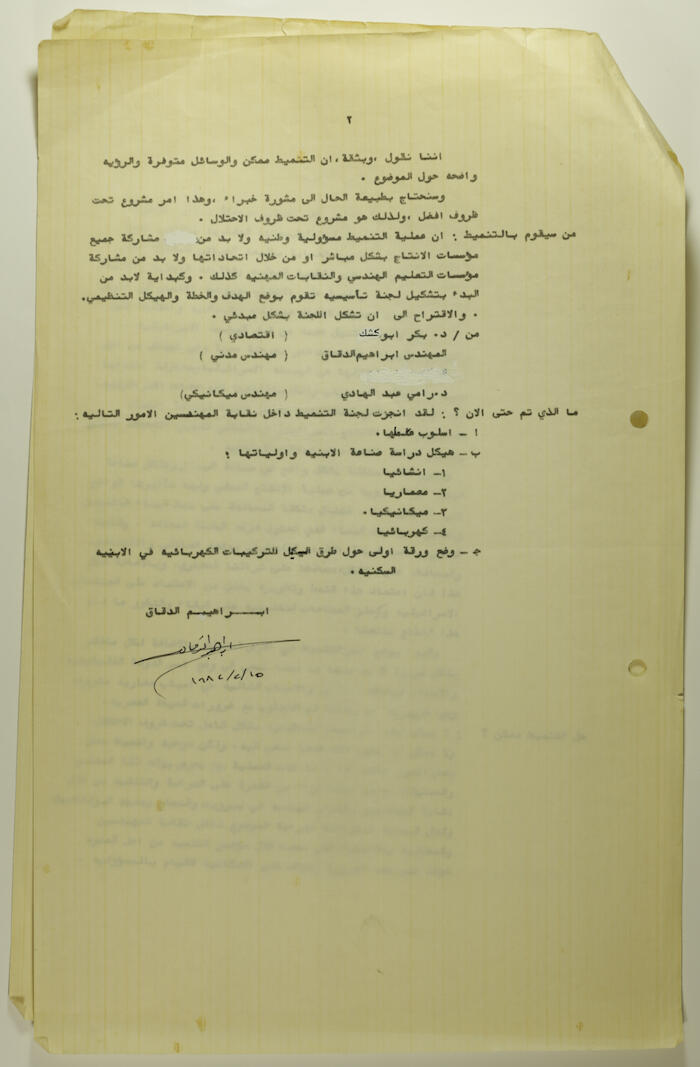 ٢
اننا نقول ،وبثقة ،ان التنميط ممكن والوسائل متوفرة والرؤيه
واضحه حول الموضوع .
وسنحتاج بطبيعة الحال الى مشورة خبراء ،وهذا امر مشروع تحت
ظروف افضل ،ولذلك هو مشروع تحت ظروف الاحتلال .
من سيقوم بالتنميط : ان عملية التنميط مسؤولية وطنيه ولا بد من مشاركة جميع
مؤسسات الانتاج بشكل مباشر او من خلال اتحاداتها ولا بد من مشاركة
مؤسسات التعليم الهندسي والنقابات المهنيه كذلك . وكبداية لابد من
البدء بتشكيل لجنة تأسيسيه تقوم بوضع الهدف والخطة والهيكل التنظيمي.
. والاقتراح الى ان تشكل اللجنة بشكل مبدئي .
من / د. بكر ابو كشك ( اقتصادي )
المهندس ابراهيم الدقاق ( مهندس مدني )
د. رامي عبد الهادي ( مهندس ميكانيكي)
ما الذي تم حتى الان ؟ : لقد انجزت لجنة التنميط داخل نقابة المهندسين الامور التاليه :
ا - اسلوب عملها .
ب- هيكل دراسة صناعة الابنيه واولياتها :
١- انشائيا
٢- معماريا
٣- ميكانيكيا .
٤- كهربائيا
ج- وضع ورقة اولى حول طرق للتركيبات الكهربائيه في الابنيه
السكنيه .
ابراهيم الدقاق